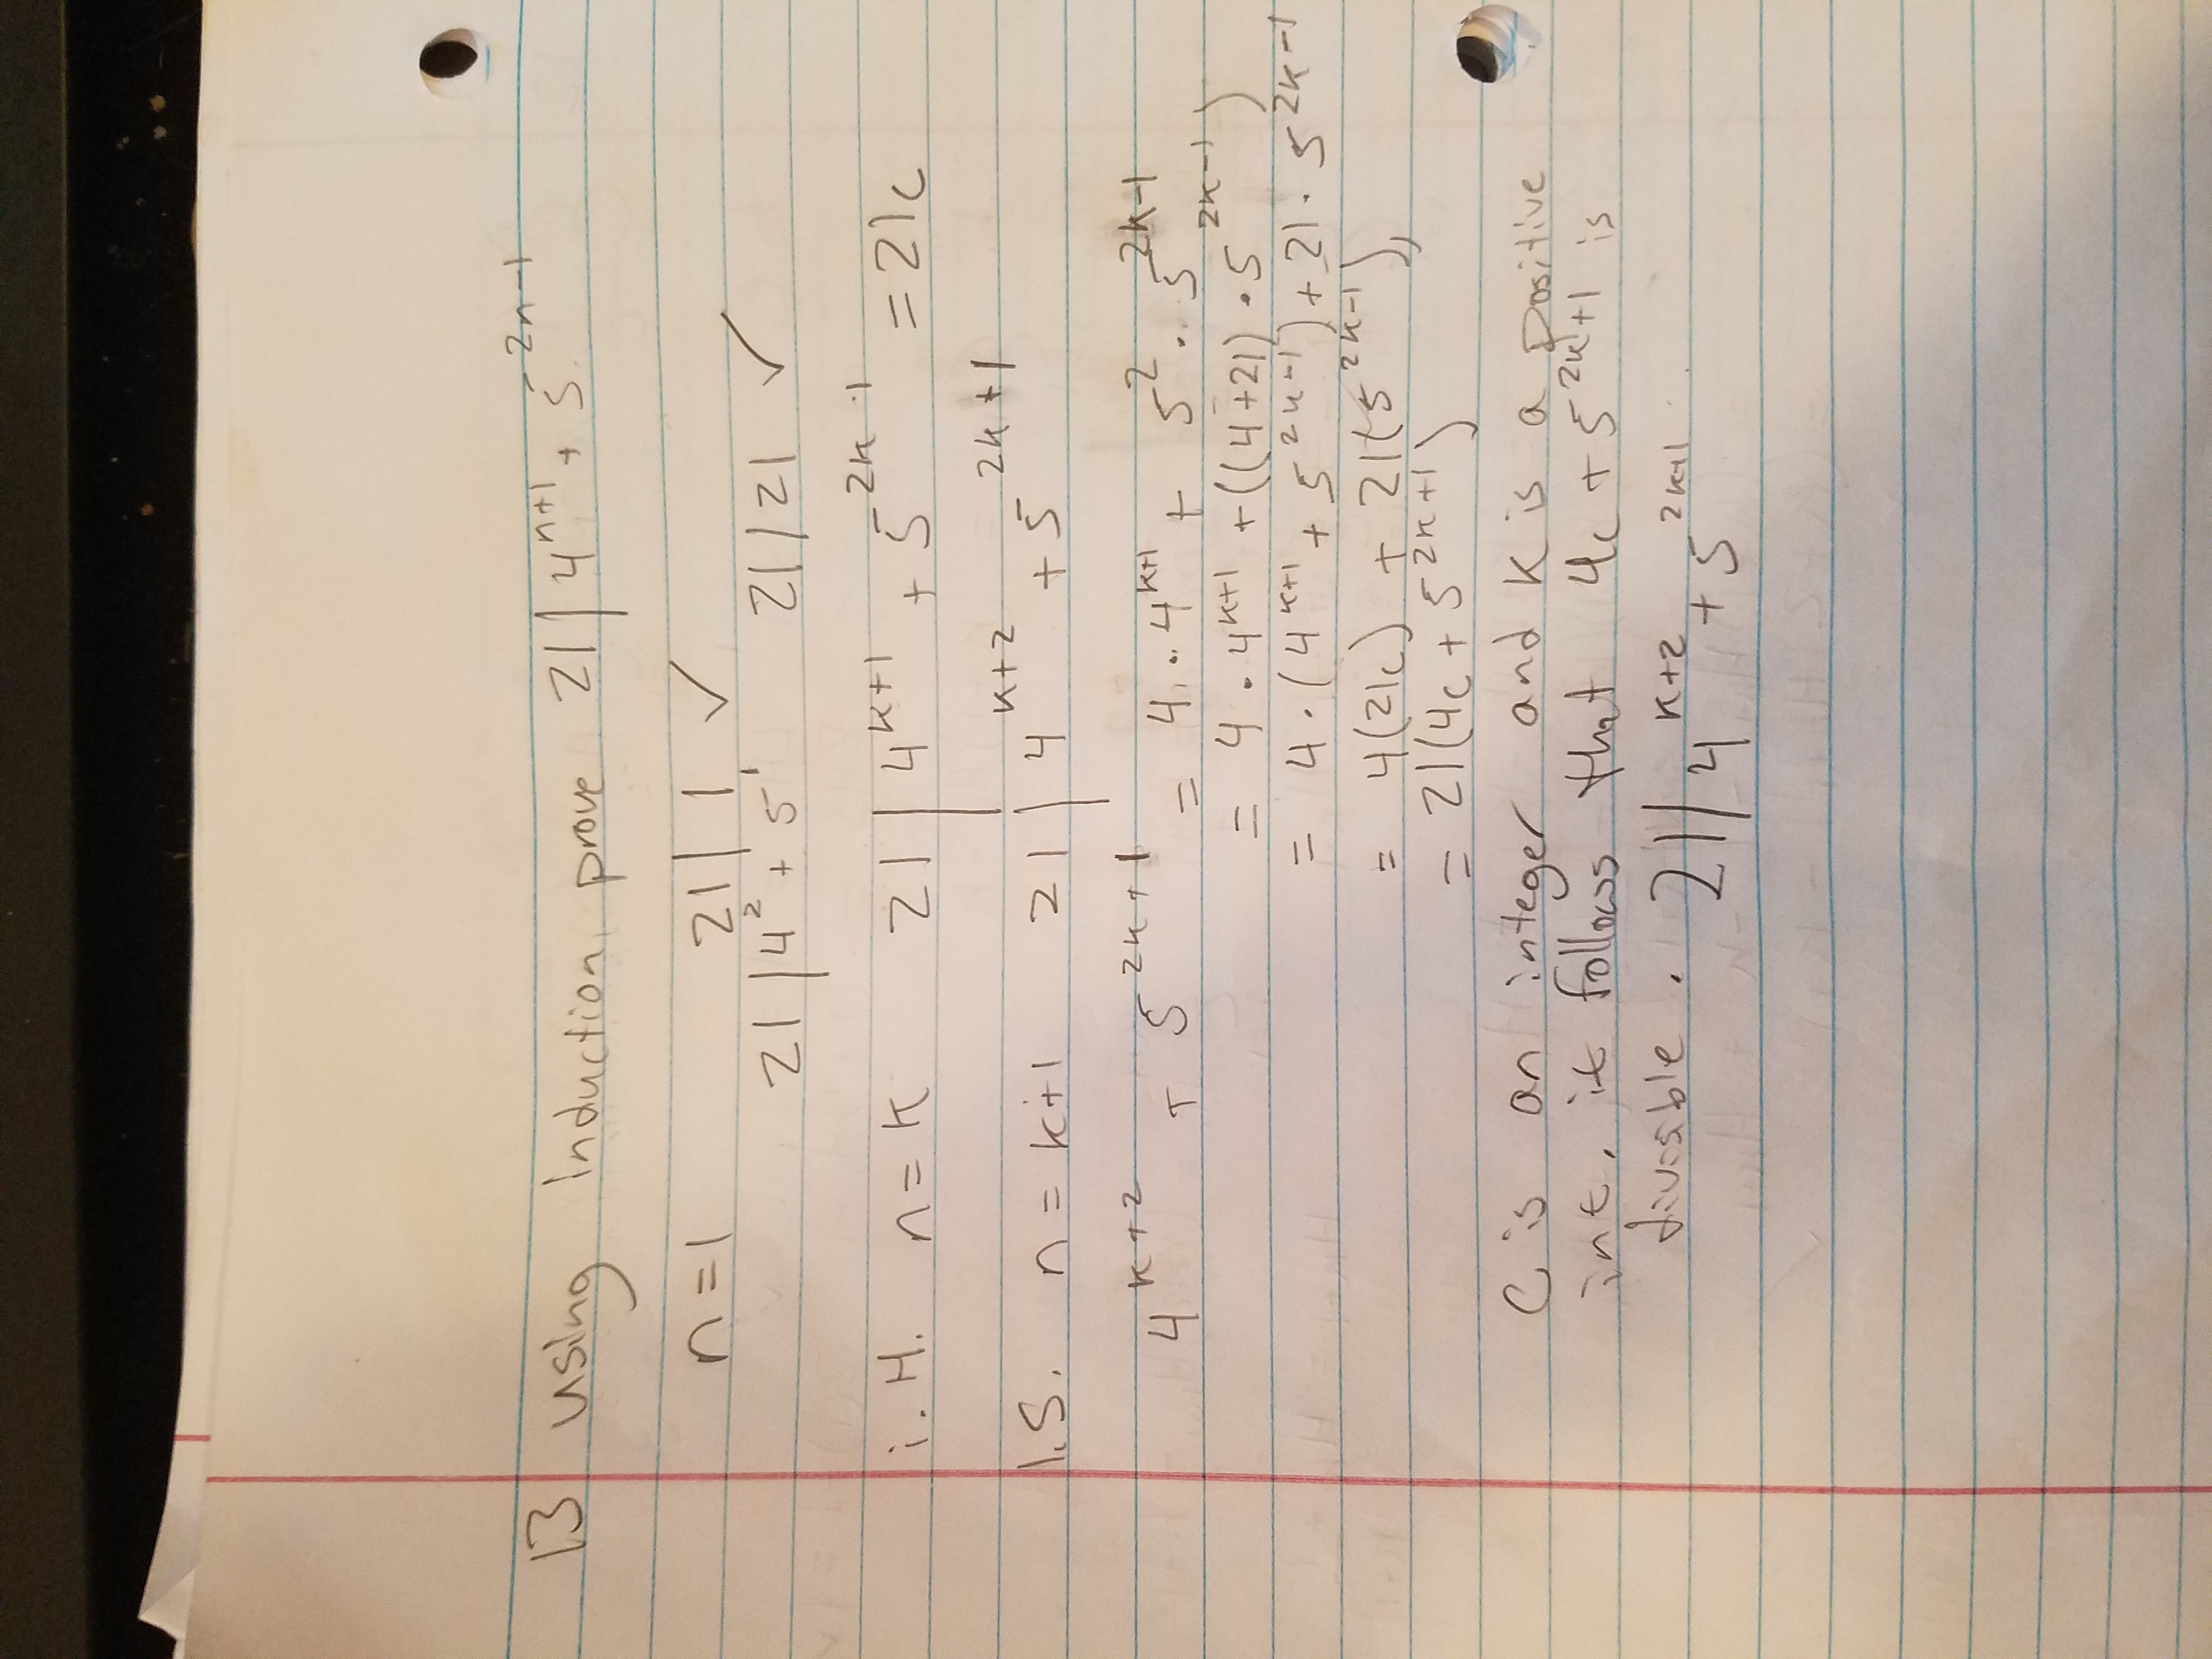 13 Using Induction, prove 21 | 4^{n+1} + 5^{2n-1}
n=1 21 | 1 ✓
21 | 4^2 + 5^1 21 | 21 ✓
i.H. n=k 21 | 4^{k+1} + 5^{2k-1} = 21c
I.S. n=k+1 21 | 4^{k+2} + 5^{2k+1}
4^{k+2} + 5^{2k+1} = 4 · 4^{k+1} + 5^2 · 5^{2k-1}
= 4 · 4^{k+1} + ((4+21) · 5^{2k-1})
= 4 · (4^{k+1} + 5^{2k-1}) + 21 · 5^{2k-1}
= 4(21c) + 21(5^{2k-1}),
= 21(4c + 5^{2k+1})
C is an integer and K is a positive
int. it follows that 4c + 5^{2k+1} is
divisible. 21 | 4^{k+2} + 5^{2k+1}